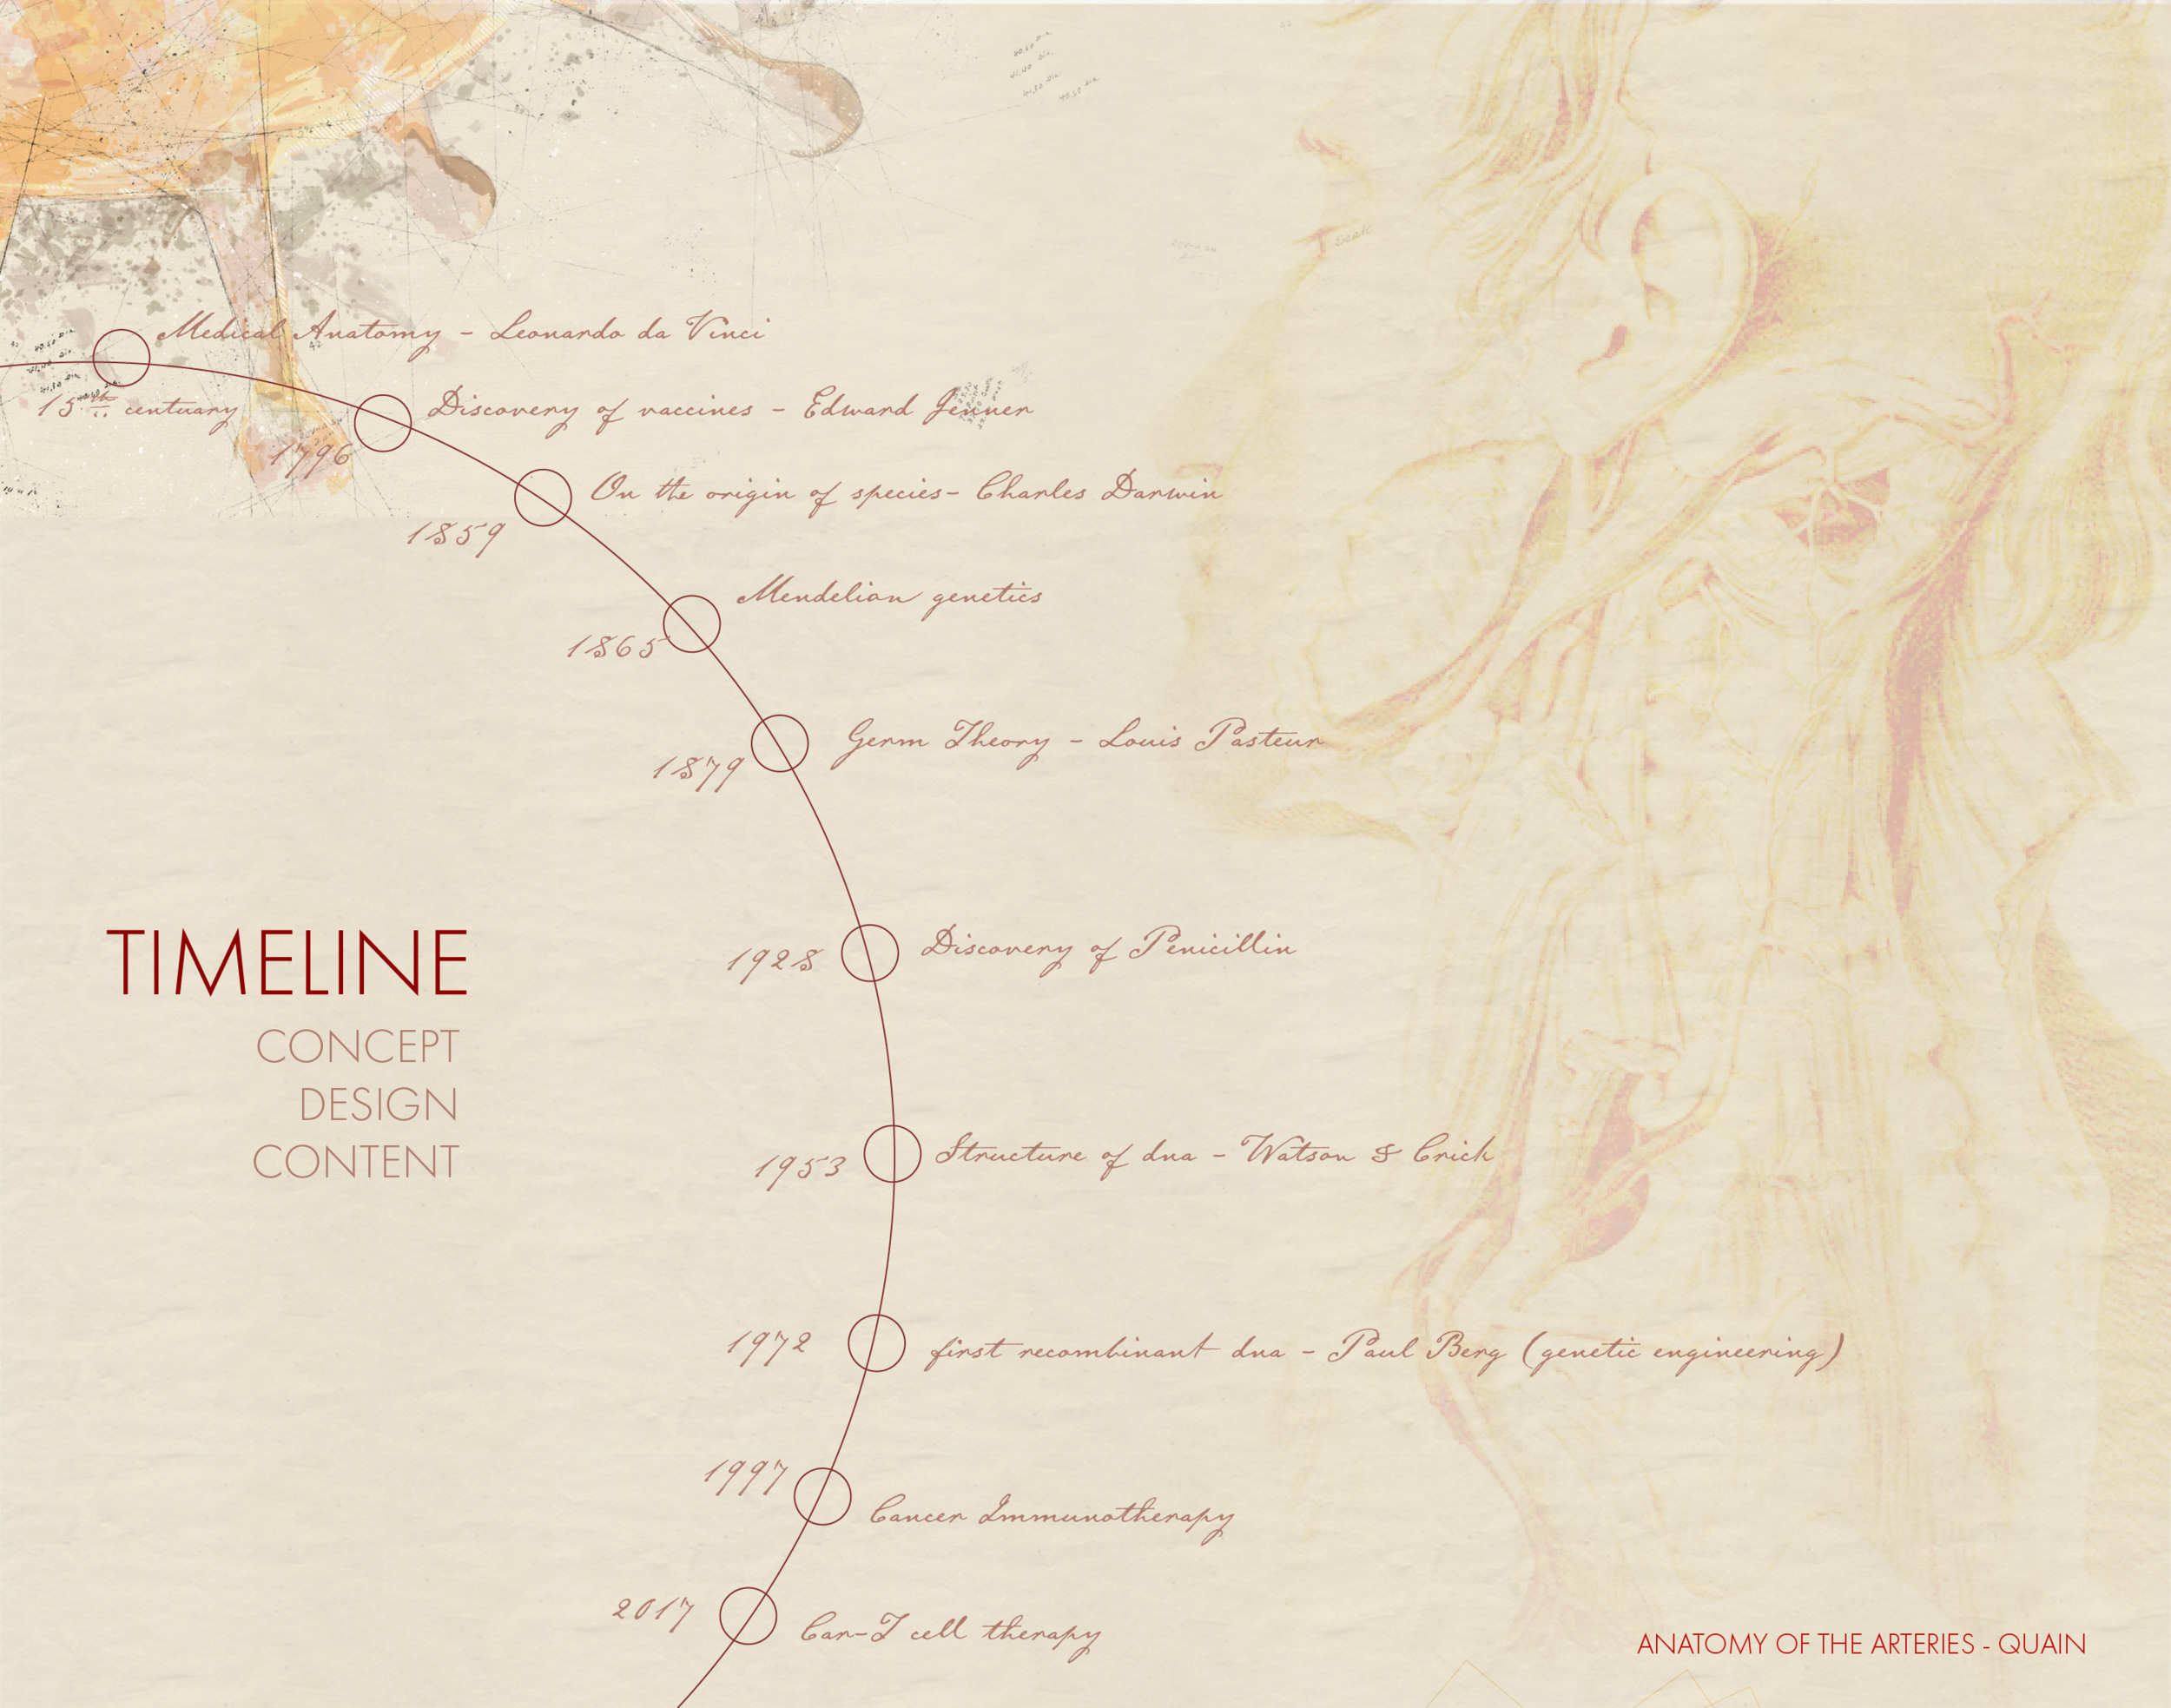 Medical Anatomy - Leonardo da Vinci
15th centuary
Discovery of vaccines - Edward Jenner
1796
On the origin of species- Charles Darwin
1859
Mendelian genetics
1865
Germ Theory - Louis Pasteur
1879
TIMELINE
CONCEPT
DESIGN
CONTENT
1928
Discovery of Penicillin
1953
Structure of dna - Watson & Crick
1972
first recombinant dna - Paul Berg (genetic engineering)
1997
Cancer Immunotherapy
2017
Car-T cell therapy
ANATOMY OF THE ARTERIES - QUAIN